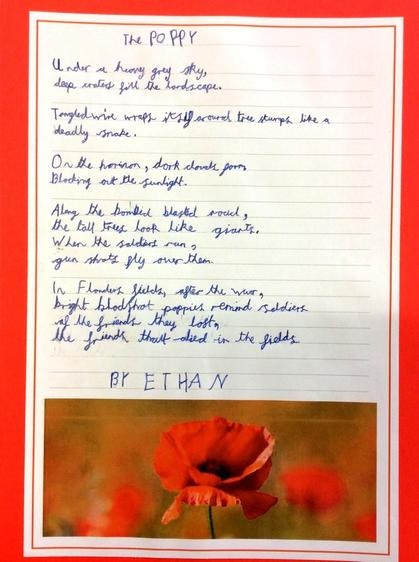 The POPPY
Under a heavy grey sky,
deep crates fill the landscape.
Tangled wire wraps itself around tree stumps like a
deadly snake.
On the horizon, dark clouds form,
Blocking out the sunlight.
Along the bombed blasted road,
the tall trees look like giants.
When the soldiers run,
gun shots fly over them.
In Flanders fields, after the war,
bright bloodshot poppies remind soldiers
of the friends they lost,
the friends that died in the fields
BY ETHAN